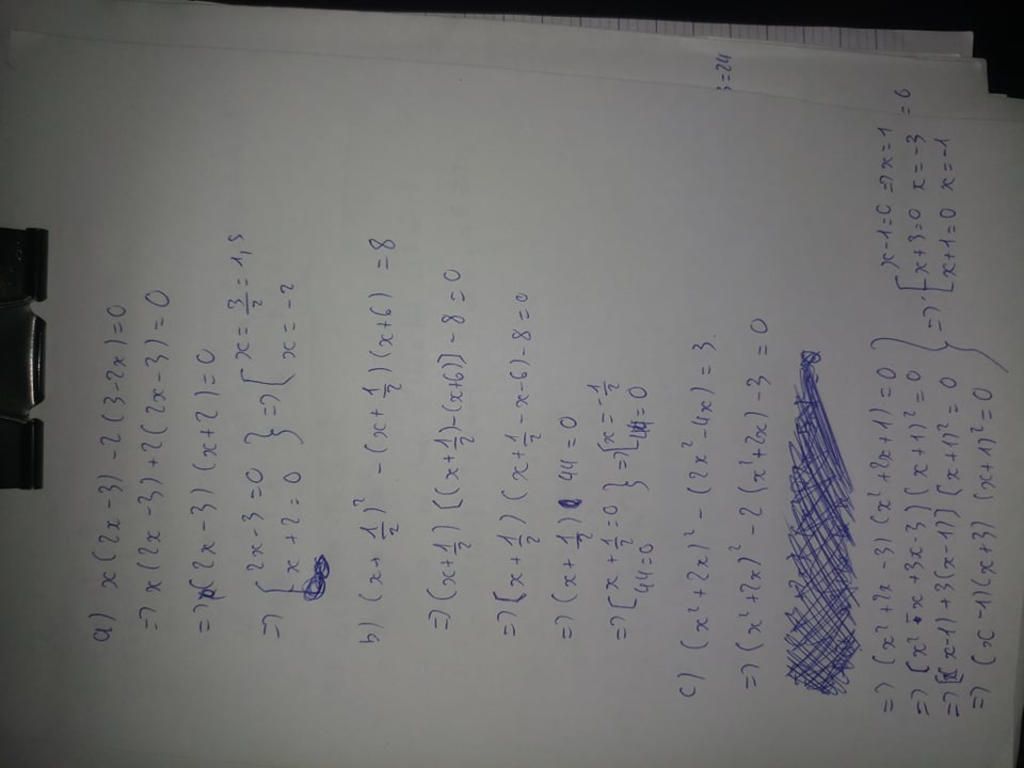 a) x(2x-3)-2(3-2x)=0
=> x(2x-3)+2(2x-3)=0
=> (2x-3)(x+2)=0
=> { 2x-3=0 x+2=0 } => [ x=3/2=1,5 x=-2
b) (x+1/2)² -(x+1/2)(x+6) =8
=> (x+1/2)[(x+1/2)-(x+6)]-8=0
=> (x+1/2)(x+1/2-x-6)-8=0
=> (x+1/2) 44=0
=> [ x+1/2=0 44=0 } => [ x=-1/2 44=0
c) (x²+2x)² -(2x²-4x)=3
=> (x²+2x)² -2(x²+2x)-3=0
=> (x²+2x-3)(x²+2x+1)=0
=> (x²-x+3x-3)(x+1)²=0
=> [(x-1)+3(x-1)] (x+1)²=0
=> (x-1)(x+3)(x+1)²=0
} => [ x-1=0 => x=1
x+3=0 x=-3
x+1=0 x=-1
=24
=6